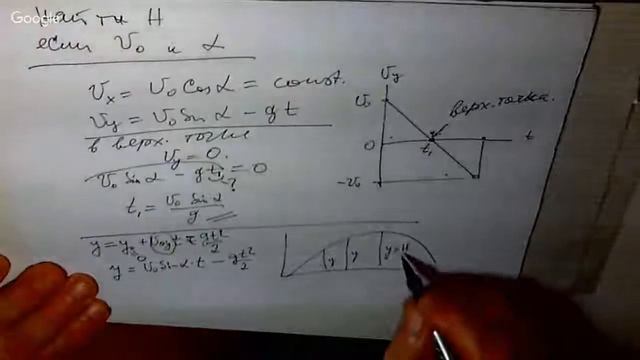 Google
Найти H
если V₀ и α
Vₓ = V₀ Cosα = const.
V_y = V₀ Sinα - gt
в верх. точке
V_y = 0.
V₀ Sin α - gt₁ = 0
?
t₁ = V₀ Sinα / g
y = y₀ + V₀y t - gt²/2
0
y = V₀ Sinα·t - gt²/2
V_y
V₀
верх. точка.
0
t₁
t
-V₀
y
y
y=H